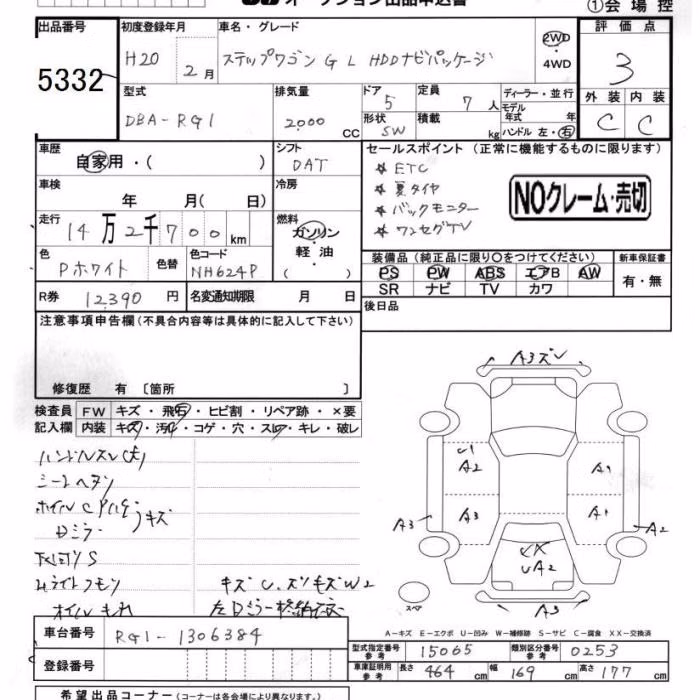 オークション出品申込書
①会場控
出品番号
5332
初度登録年月
H20 2月
車名・グレード
ステップワゴン G L HDDナビパッケージ
2WD
・
4WD
評価点
3
外装 内装
C C
型式
DBA-RG1
排気量
2000 CC
ドア 5
形状 SW
定員 7人
積載 kg
ディーラー・並行
モデル年式 年式
ハンドル 左・右
車歴
自家用・( )
シフト
DAT
車検
年 月( 日)
冷房
走行
14万2千700km
燃料
ガソリン
軽油
色
Pホワイト
色替
色コード
NH624P
R券 12,390円
名変通知期限 月 日
セールスポイント (正常に機能するものに限ります)
☆ ETC
☆ 夏タイヤ
☆ バックモニター
☆ ワンセグTV
NOクレーム・売切
装備品(純正品に限り○をつけてください)
PS PW ABS エアB AW
SR ナビ TV カワ
新車保証書
有・無
後日品
注意事項申告欄(不具合内容等は具体的に記入して下さい)
修復歴 有〔箇所 〕
検査員記入欄
FW キズ・飛石・ヒビ割・リペア跡・×要
内装 キズ・汚れ・コゲ・穴・スレ・キレ・破レ
ハンドルスレ(大)
シートヘタリ
Dミラー
キズ
キズU.
A3ズレ
U1
A2
A1
A3
A1
A3
A2
UA2
A3
スペア
A-キズ E-エクボ U-凹み W-補修跡 S-サビ C-腐食 XX-交換済
車台番号 RG1-1306384
登録番号
型式指定番号 参考 15065
類別区分番号 参考 0253
車庫証明用 参考 長さ 464cm 幅 169cm 高さ 177cm
希望出品コーナー(コーナーは各会場により異なります。)